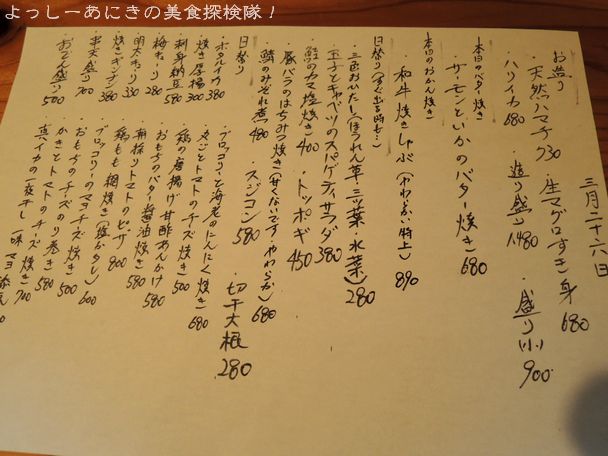 よっしーあにきの美食探検隊！
三月二十六日
お造り
・天然ハマチ 730 ・生マグロすき身 680
・ハリイカ 680 ・造り盛り 1480 ・盛り(小) 900
本日のバター焼き
・サーモンといかのバター焼き 680
本日のおかん焼き
・和牛焼きしゃぶ(やわらかい特上) 890
日替り(すぐ出る時も…)
・三色おひたし(ほうれん草・三ツ葉・水菜) 280
・玉子とキャベツのスパゲティサラダ 380
・鮭のカマ塩焼き 400 ・トッポギ 450
・豚バラのはちみつ焼き(甘くないですやわらか) 680
・鯖のみぞれ煮 480 ・スジコン 580 ・切干大根 280
日替り
・ホタルイカ 380
・焼き厚揚 300
・刺身納豆 580
・梅キューリ 280
・明太キューリ 330
・焼きギンナン 380
・串天盛り 700
・おでん盛り 500
・ブロッコリーと海老のにんにく焼き 680
・丸ごとトマトのチーズ焼き 500
・鶏の唐揚げ甘酢あんかけ 580
・おもちのバター醤油焼き 580
・朝採りトマトのピザ 800
・鶏もも網焼き(塩かタレ) 600
・ブロッコリーのマヨチーズ焼き 500
・おもちのチーズのり巻き 580
・かきとトマトのチーズ焼き 700
・真イカの一夜干し 一味マヨ添え